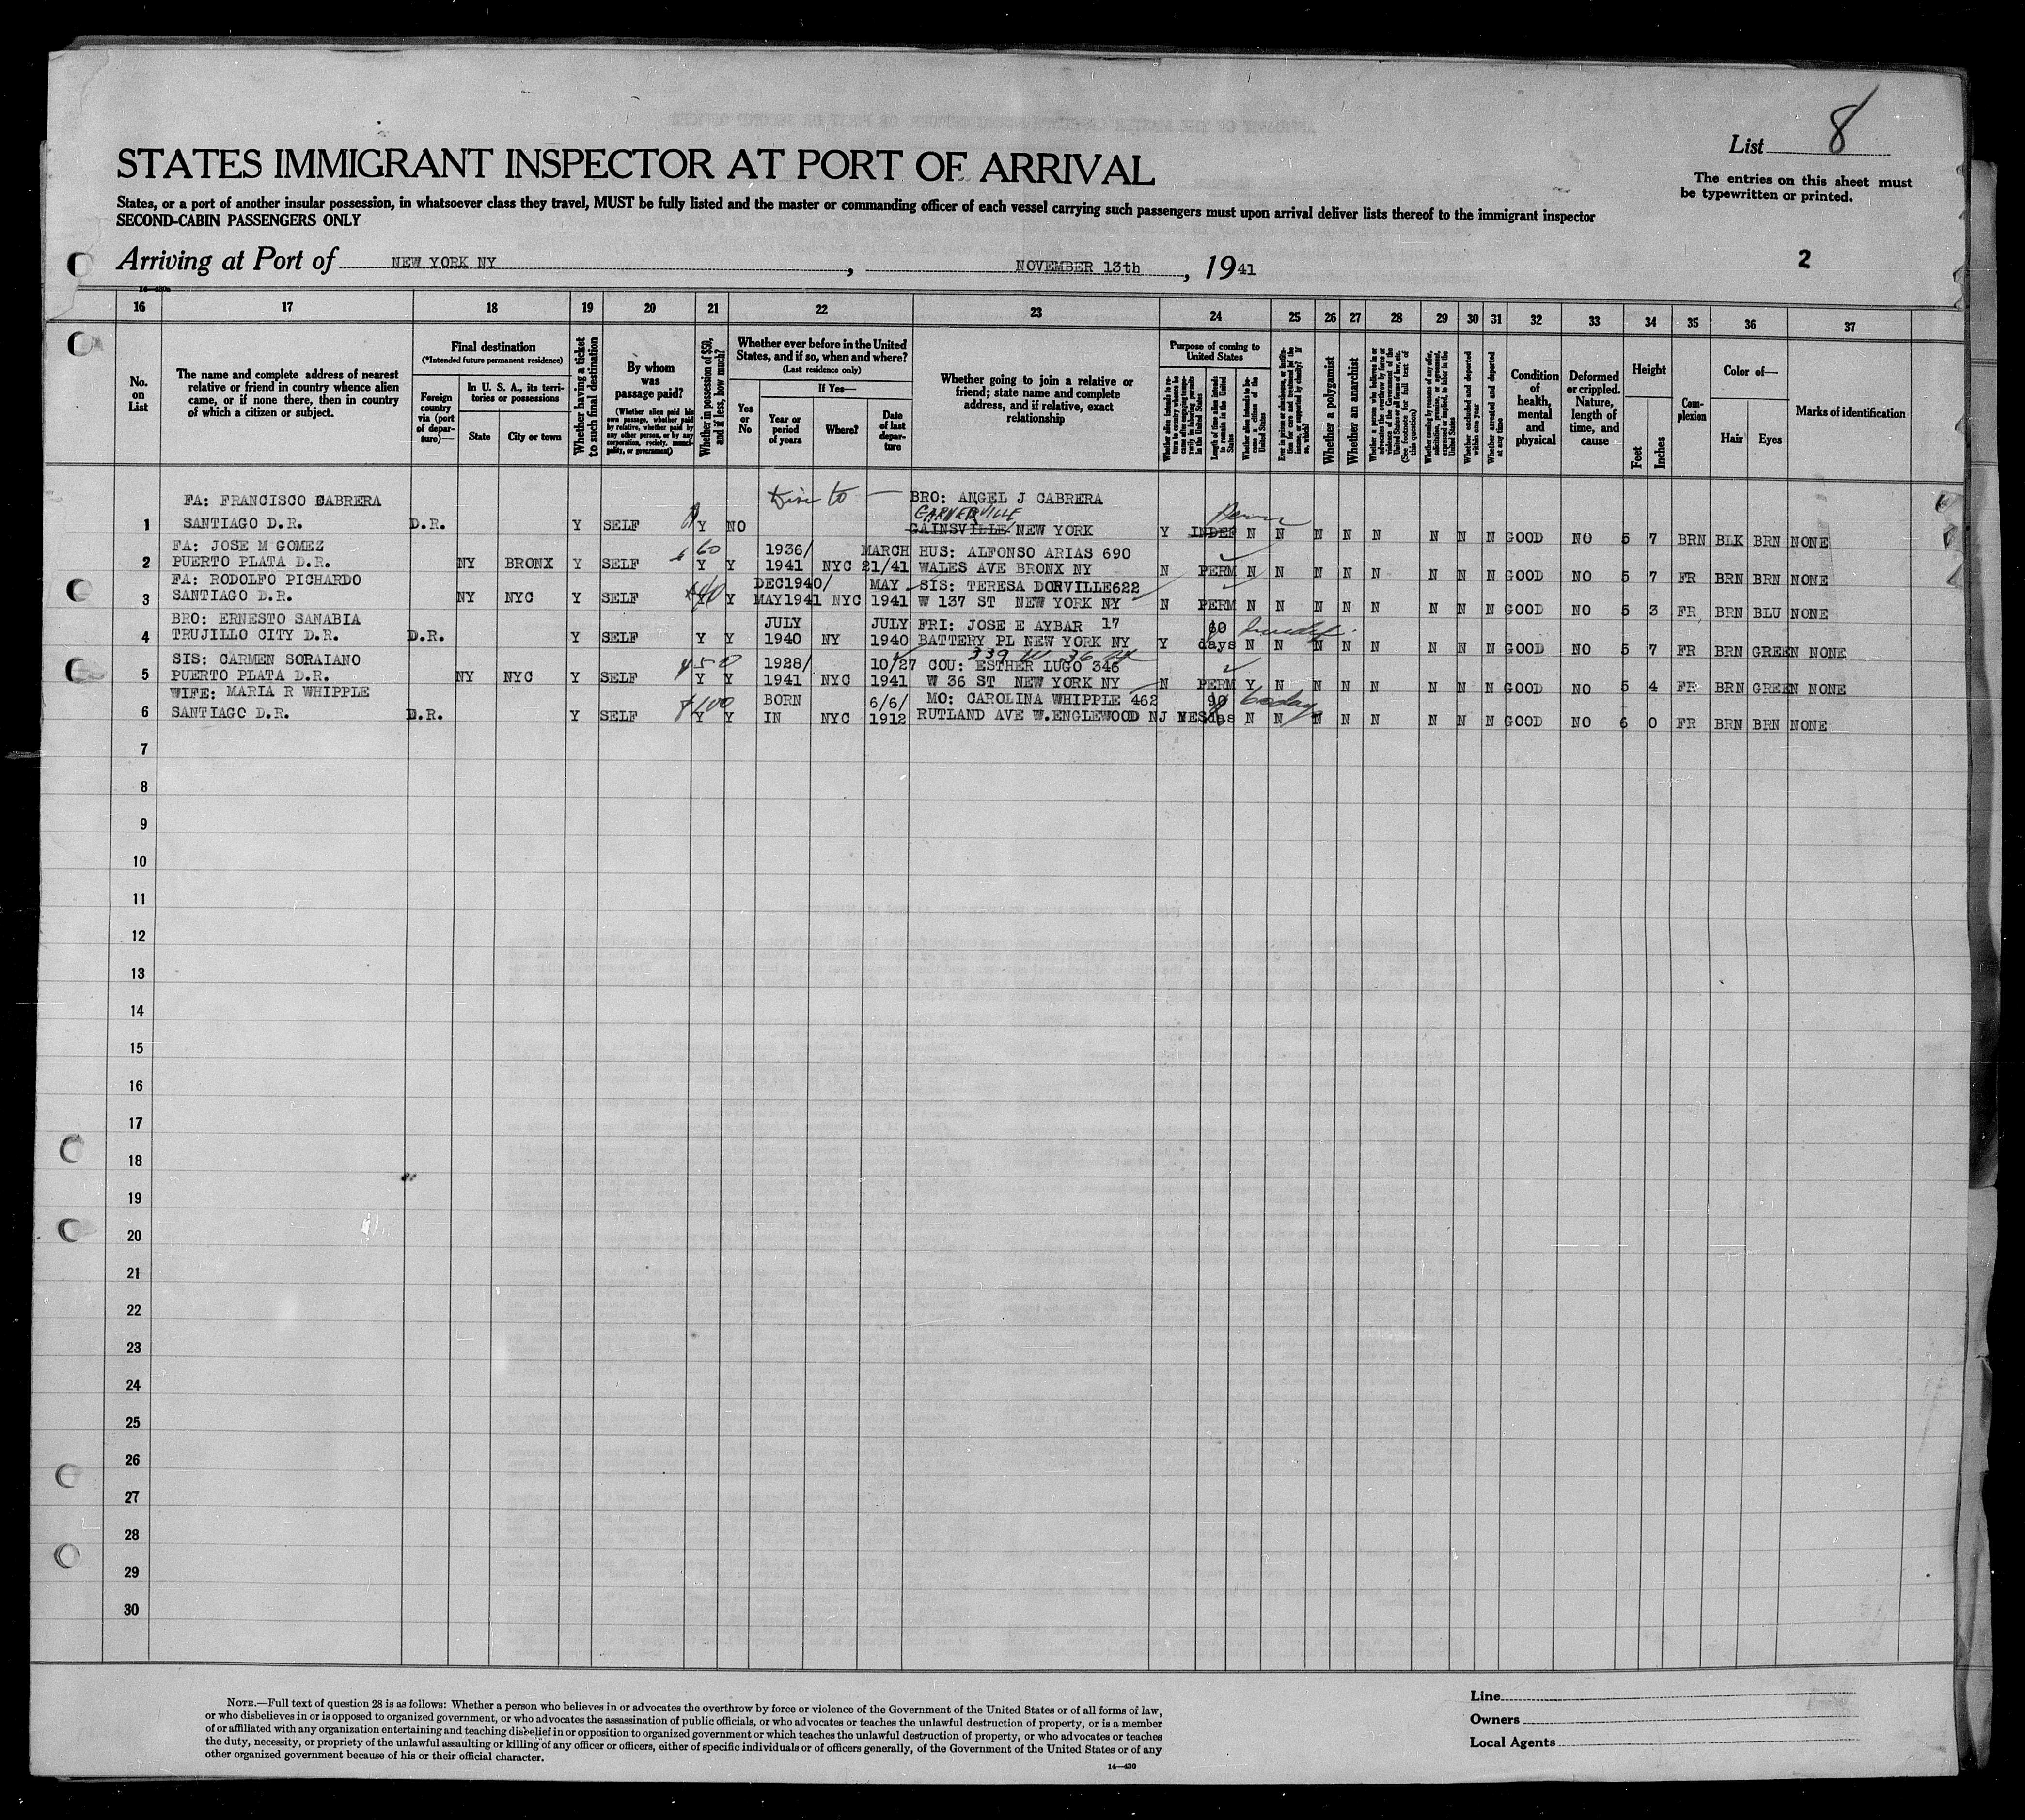 List 8
STATES IMMIGRANT INSPECTOR AT PORT OF ARRIVAL
The entries on this sheet must
be typewritten or printed.
States, or a port of another insular possession, in whatsoever class they travel, MUST be fully listed and the master or commanding officer of each vessel carrying such passengers must upon arrival deliver lists thereof to the immigrant inspector
SECOND-CABIN PASSENGERS ONLY
Arriving at Port of NEW YORK NY, NOVEMBER 13th, 1941
2
16 17 18 19 20 21 22 23 24 25 26 27 28 29 30 31 32 33 34 35 36 37
No. on List
The name and complete address of nearest relative or friend in country whence alien came, or if none there, then in country of which a citizen or subject.
Final destination
(*Intended future permanent residence)
Foreign country via (port of departure)—
In U. S. A., its territories or possessions
State
City or town
Whether having a ticket to such final destination
By whom was passage paid?
(Whether alien paid his own passage, whether paid by relative, whether paid by any other person, or by any corporation, society, municipality, or government)
Whether in possession of $50, and if less, how much?
Whether ever before in the United States, and if so, when and where?
(Last residence only)
Yes or No
If Yes—
Year or period of years
Where?
Date of last departure
Whether going to join a relative or friend; state name and complete address, and if relative, exact relationship
Purpose of coming to United States
Length of time alien intends to remain in the United States
Whether alien intends to become a citizen of the United States
Whether a polygamist
Whether an anarchist
Whether excluded and deported within one year
Whether arrested and deported at any time
Condition of health, mental and physical
Deformed or crippled. Nature, length of time, and cause
Height
Feet
Inches
Complexion
Color of—
Hair
Eyes
Marks of identification
FA: FRANCISCO CABRERA BRO: ANGEL J CABRERA
GARNERVILLE
1 SANTIAGO D.R. D.R. Y SELF Y NO GAINSVILLE NEW YORK Y INDEF N N N N N N N N GOOD NO 5 7 BRN BLK BRN NONE
FA: JOSE M GOMEZ 60 1936/ MARCH HUS: ALFONSO ARIAS 690
2 PUERTO PLATA D.R. NY BRONX Y SELF Y Y 1941 NYC 21/41 WALES AVE BRONX NY N PERM N N N N N N N N GOOD NO 5 7 FR BRN BRN NONE
FA: RODOLFO PICHARDO DEC1940/ MAY SIS: TERESA DORVILLE622
3 SANTIAGO D.R. NY NYC Y SELF Y Y MAY1941 NYC 1941 W 137 ST NEW YORK NY N PERM N N N N N N N N GOOD NO 5 3 FR BRN BLU NONE
BRO: ERNESTO SANABIA JULY JULY FRI: JOSE E AYBAR 17 60
4 TRUJILLO CITY D.R. D.R. Y SELF Y Y 1940 NY 1940 BATTERY PL NEW YORK NY Y days N N N N N N N N GOOD NO 5 7 FR BRN GREEN NONE
339 W 36 St
SIS: CARMEN SORAIANO 450 1928/ 10/27 COU: ESTHER LUGO 346
5 PUERTO PLATA D.R. NY NYC Y SELF Y Y 1941 NYC 1941 W 36 ST NEW YORK NY N PERM Y N N N N N N N GOOD NO 5 4 FR BRN GREEN NONE
WIFE: MARIA R WHIPPLE $100 BORN 6/6/ MO: CAROLINA WHIPPLE 462 90 60 days
6 SANTIAGO D.R. D.R. Y SELF Y Y IN NYC 1912 RUTLAND AVE W.ENGLEWOOD NJ YES N N N N N N N N GOOD NO 6 0 FR BRN BRN NONE
7
8
9
10
11
12
13
14
15
16
17
18
19
20
21
22
23
24
25
26
27
28
29
30
NOTE.—Full text of question 28 is as follows: Whether a person who believes in or advocates the overthrow by force or violence of the Government of the United States or of all forms of law,
or who disbelieves in or is opposed to organized government, or who advocates the assassination of public officials, or who advocates or teaches the unlawful destruction of property, or is a member
of or affiliated with any organization entertaining and teaching disbelief in or opposition to organized government or which teaches the unlawful destruction of property, or who advocates or teaches
the duty, necessity, or propriety of the unlawful assaulting or killing of any officer or officers, either of specific individuals or of officers generally, of the Government of the United States or of any
other organized government because of his or their official character.
14—430
Line
Owners
Local Agents